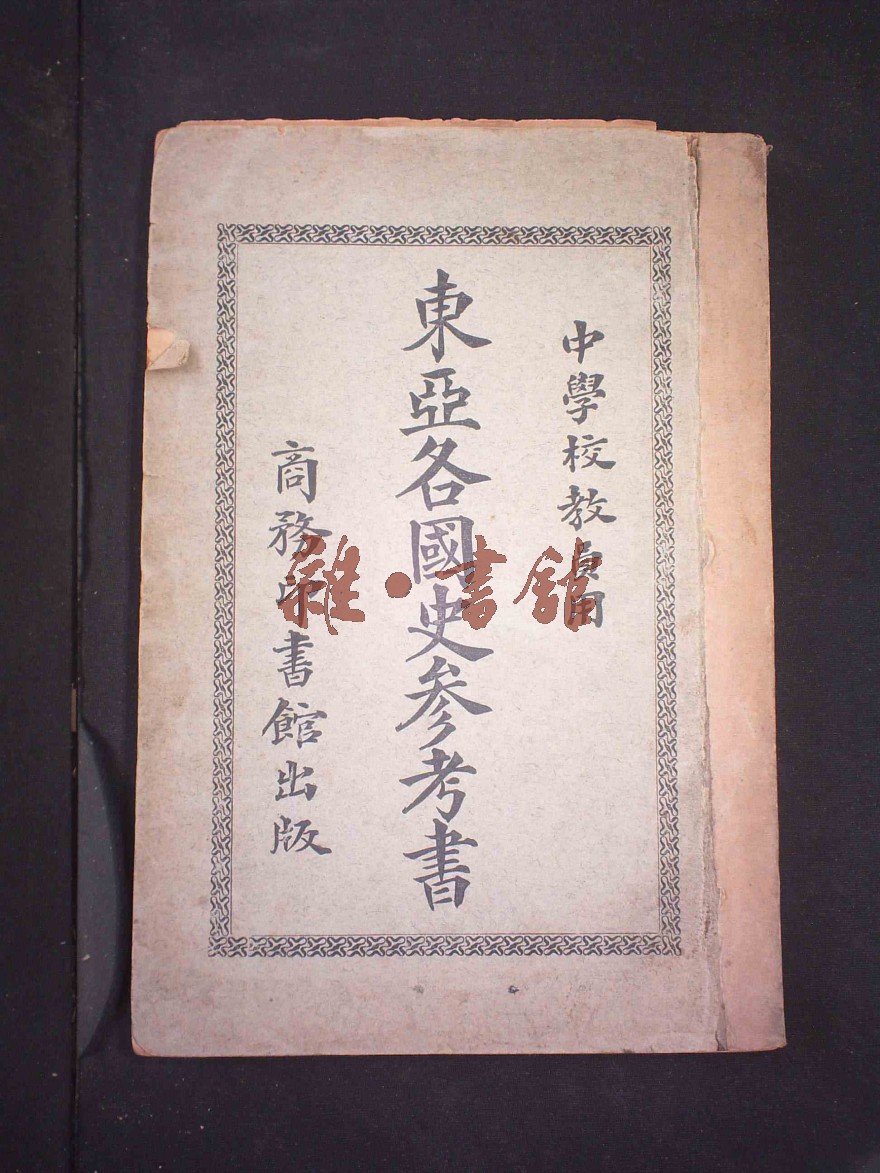 中學校教員用
東亞各國史参考書
商務印書館出版
雜·書館